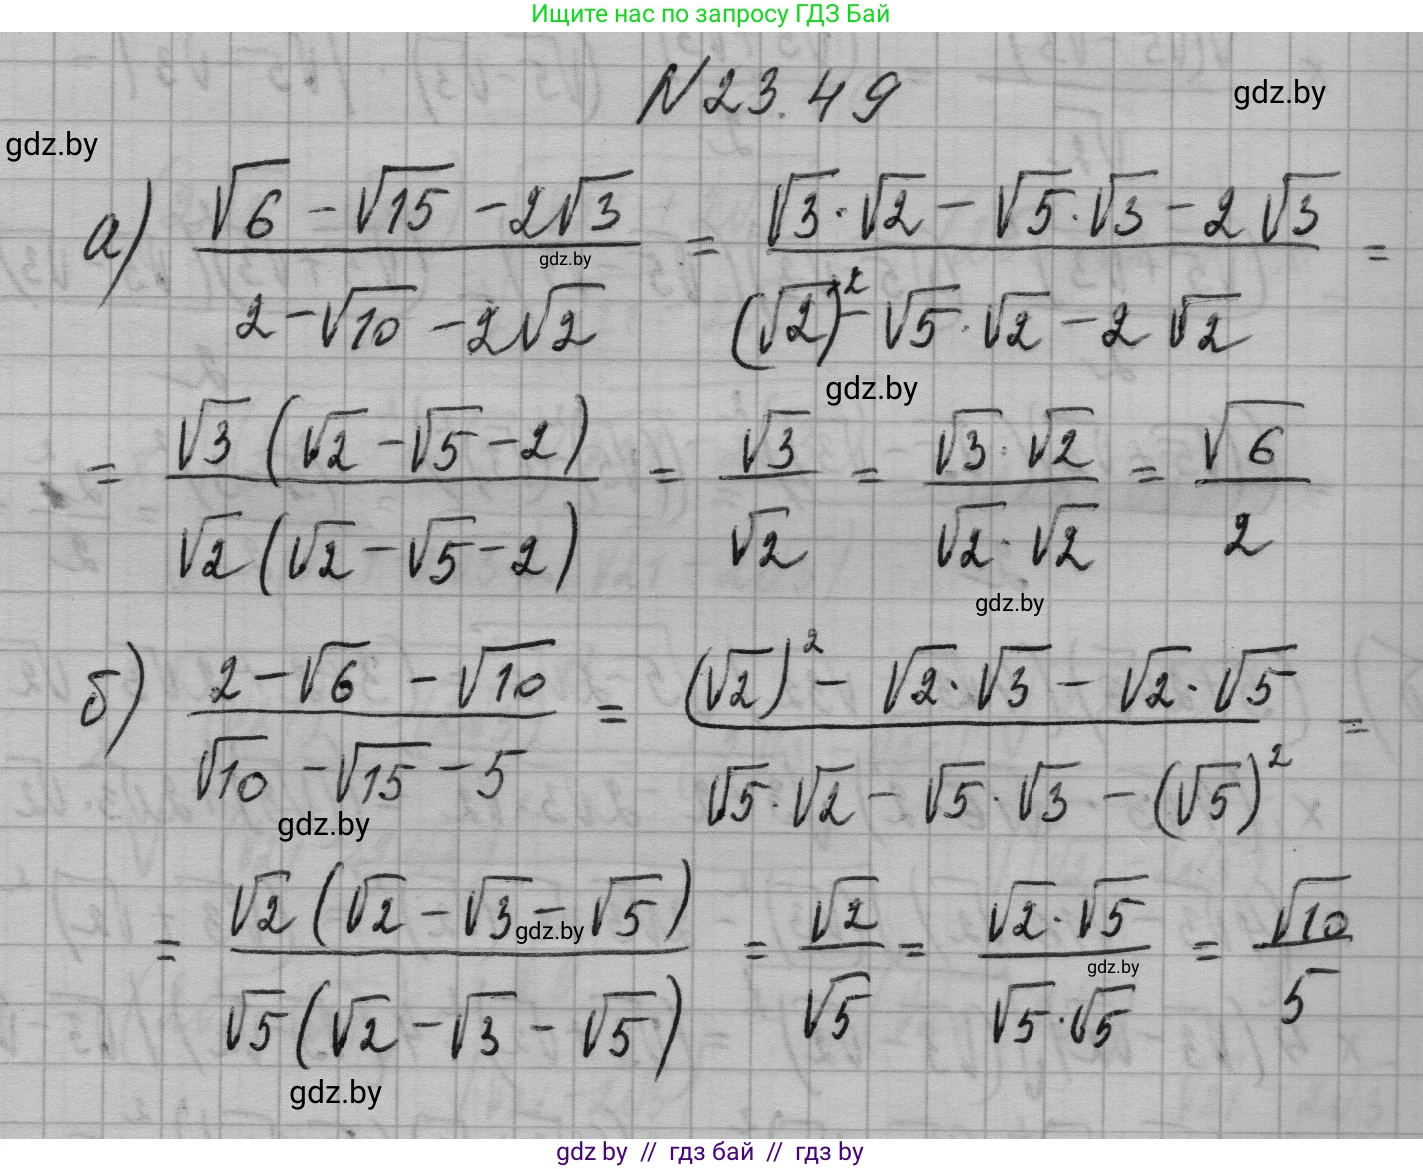 Ищите нас по запросу ГДЗ Бай
N 23.49
gdz.by
gdz.by
а) (√6 − √15 − 2√3) / (2 − √10 − 2√2) = (√3·√2 − √5·√3 − 2√3) / ((√2)² − √5·√2 − 2√2) =
gdz.by
gdz.by
= √3(√2 − √5 − 2) / √2(√2 − √5 − 2) = √3 / √2 = √3·√2 / √2·√2 = √6 / 2
gdz.by
б) (2 − √6 − √10) / (√10 − √15 − 5) = ((√2)² − √2·√3 − √2·√5) / (√5·√2 − √5·√3 − (√5)²) =
gdz.by
= √2(√2 − √3 − √5) / √5(√2 − √3 − √5) = √2 / √5 = √2·√5 / √5·√5 = √10 / 5
gdz.by
gdz.by
gdz.by
gdz by // гдз бай // гдз by